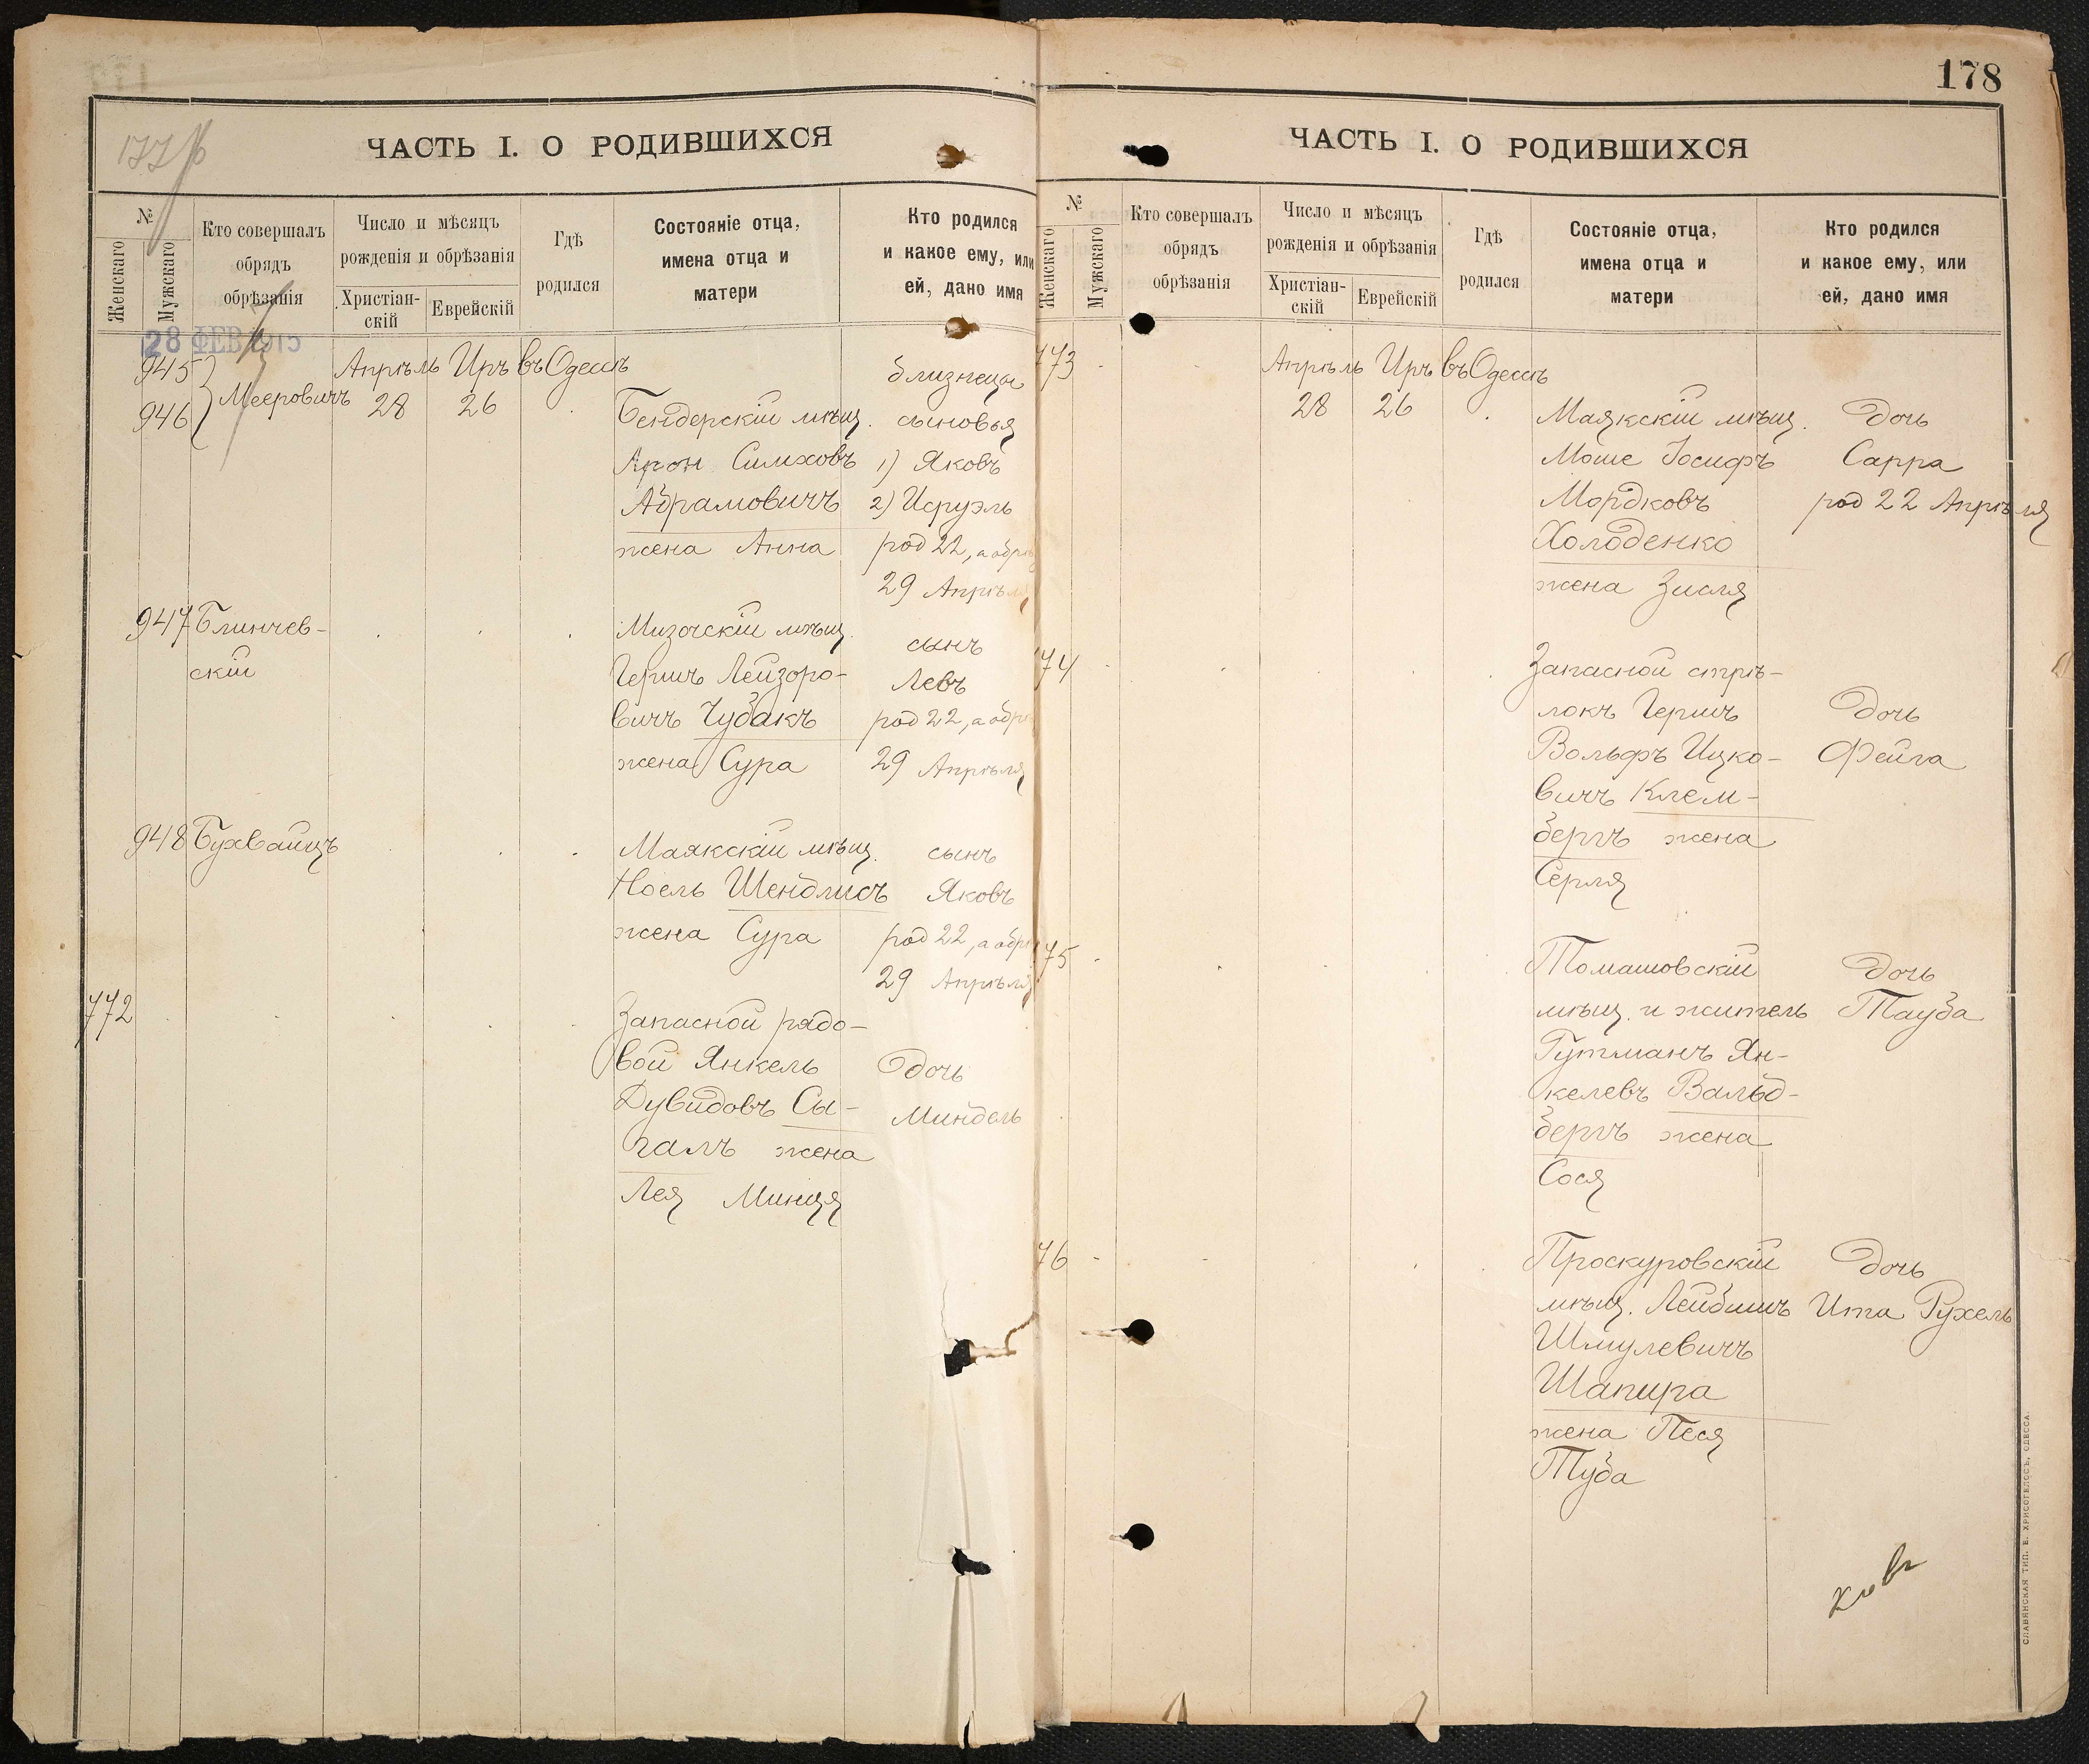 177б
ЧАСТЬ I. О РОДИВШИХСЯ
№
Женскаго
Мужскаго
Кто совершалъ
обрядъ
обрѣзанія
Число и мѣсяцъ
рожденія и обрѣзанія
Христіан-
скій
Еврейскій
Гдѣ
родился
Состояніе отца,
имена отца и
матери
Кто родился
и какое ему, или
ей, дано имя
28 ФЕВ 1915
945
946
Мееровичъ
Апрѣль Иръ въ Одессѣ
28 26
Бендерскій мѣщ.
Арон Симховъ
Абрамовичъ
жена Анна
близнецы
сыновья
1) Яковъ
2) Исруэль
род 22, а обрѣ
29 Апрѣля
947 Блинчев-
скій
Мизочскій мѣщ.
Гершъ Лейзоро-
вичъ Чудакъ
жена Сура
сынъ
Левъ
род 22, а обрѣ
29 Апрѣля
948 Бухвайцъ
Маякскій мѣщ.
Ноель Шендлисъ
жена Сура
сынъ
Яковъ
род 22, а обрѣ
29 Апрѣля
772
Запасной рядо-
вой Янкель
Дувидовъ Сы-
галъ жена
Лея Минця
Дочь
Миндель
178
ЧАСТЬ I. О РОДИВШИХСЯ
№
Женскаго
Мужскаго
Кто совершалъ
обрядъ
обрѣзанія
Число и мѣсяцъ
рожденія и обрѣзанія
Христіан-
скій
Еврейскій
Гдѣ
родился
Состояніе отца,
имена отца и
матери
Кто родился
и какое ему, или
ей, дано имя
773
Апрѣль Иръ въ Одессѣ
28 26
Маякскій мѣщ.
Моше Іосифъ
Мордковъ
Холоденко
жена Зисля
Дочь
Сарра
род 22 Апрѣля
74
Запасной стрѣ-
локъ Гершъ
Вольфъ Ицко-
вичъ Клем-
бергъ жена
Серля
Дочь
Фейга
75
Томашовскій
мѣщ. и житель
Гутманъ Ян-
келевъ Вальд-
бергъ жена
Сося
Дочь
Тауба
76
Проскуровскій
мѣщ. Лейбишъ
Шмулевичъ
Шапира
жена Песя
Туба
Дочь
Ита Рухель
СЛАВЯНСКАЯ ТИП. Е. ХРИСОГЕЛОСЪ, ОДЕССА.